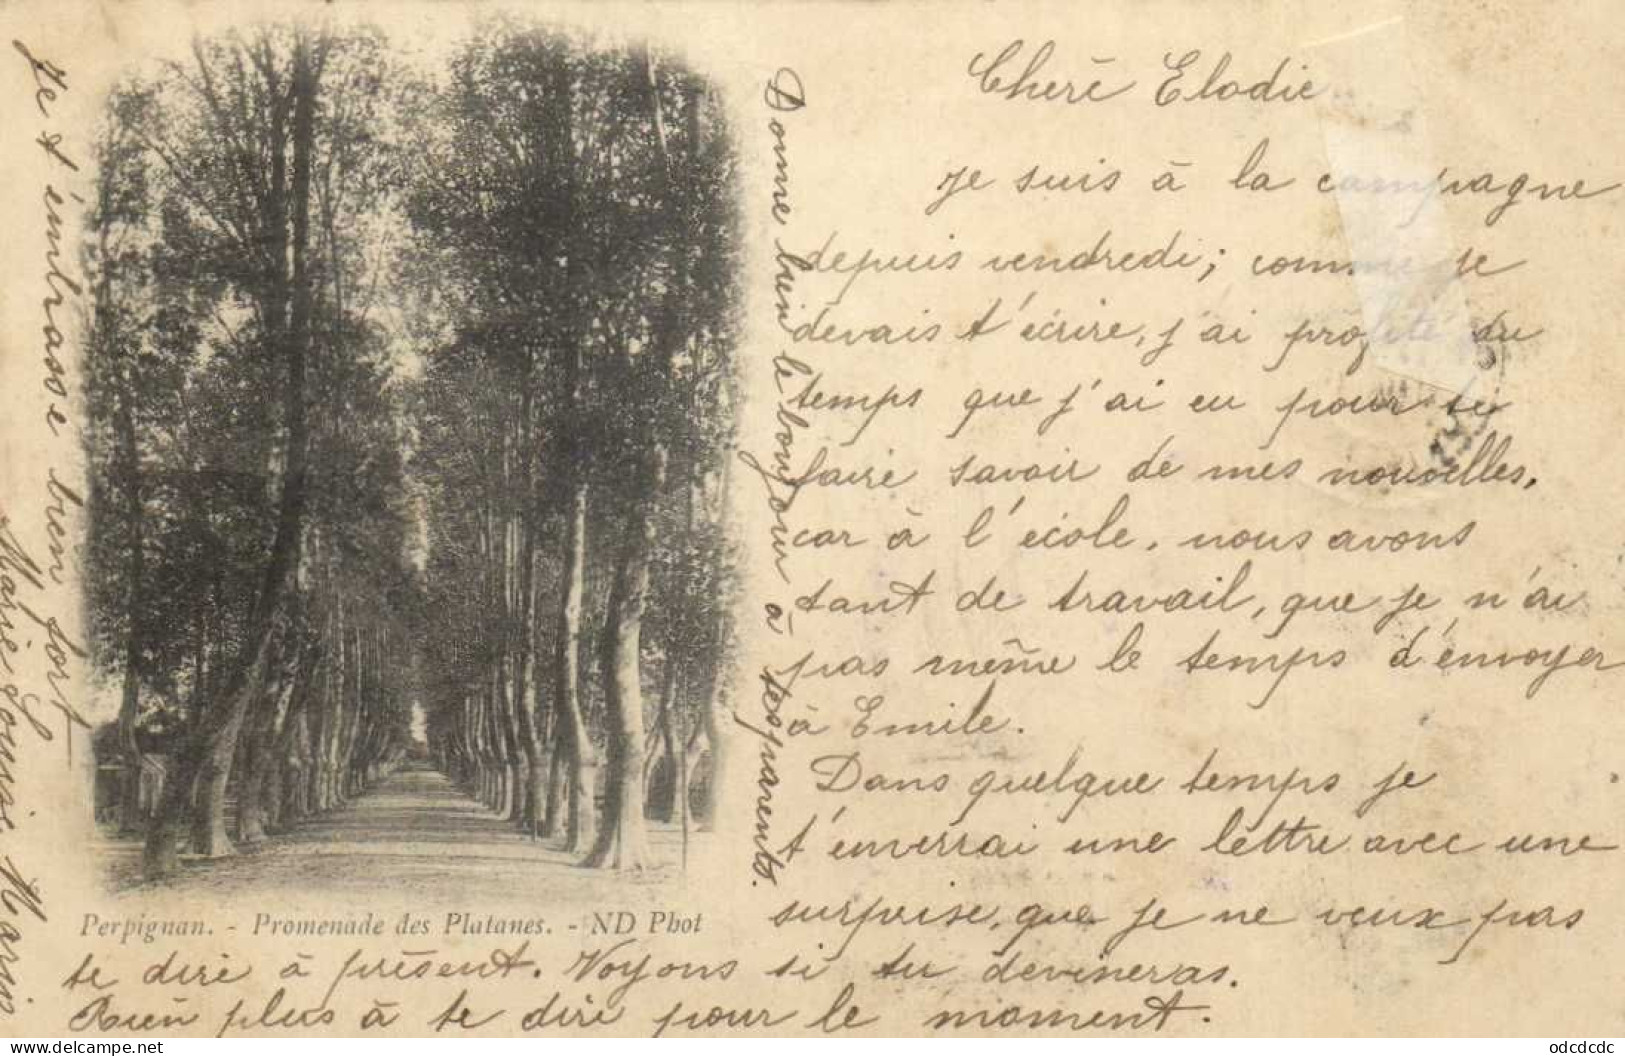 Cherē Elodie
Je suis à la campagne
depuis vendredi; comme je
devais t'écrire, j'ai profité du
temps que j'ai eu pour te
faire savoir de mes nouvelles,
car à l'école, nous avons
tant de travail, que je n'ai
pas même le temps d'envoyer
à Emile.
Dans quelque temps je
t'enverrai une lettre avec une
surprise, que je ne veux pas
te dire à présent. Voyons si tu devineras.
Rien plus à te dire pour le moment.
Donne bien le bonjour à tes parents.
Je t'embrasse bien fort
Marie Louise Maris
Perpignan. - Promenade des Platanes. - ND Phot
www.delcampe.net
odcdcdc